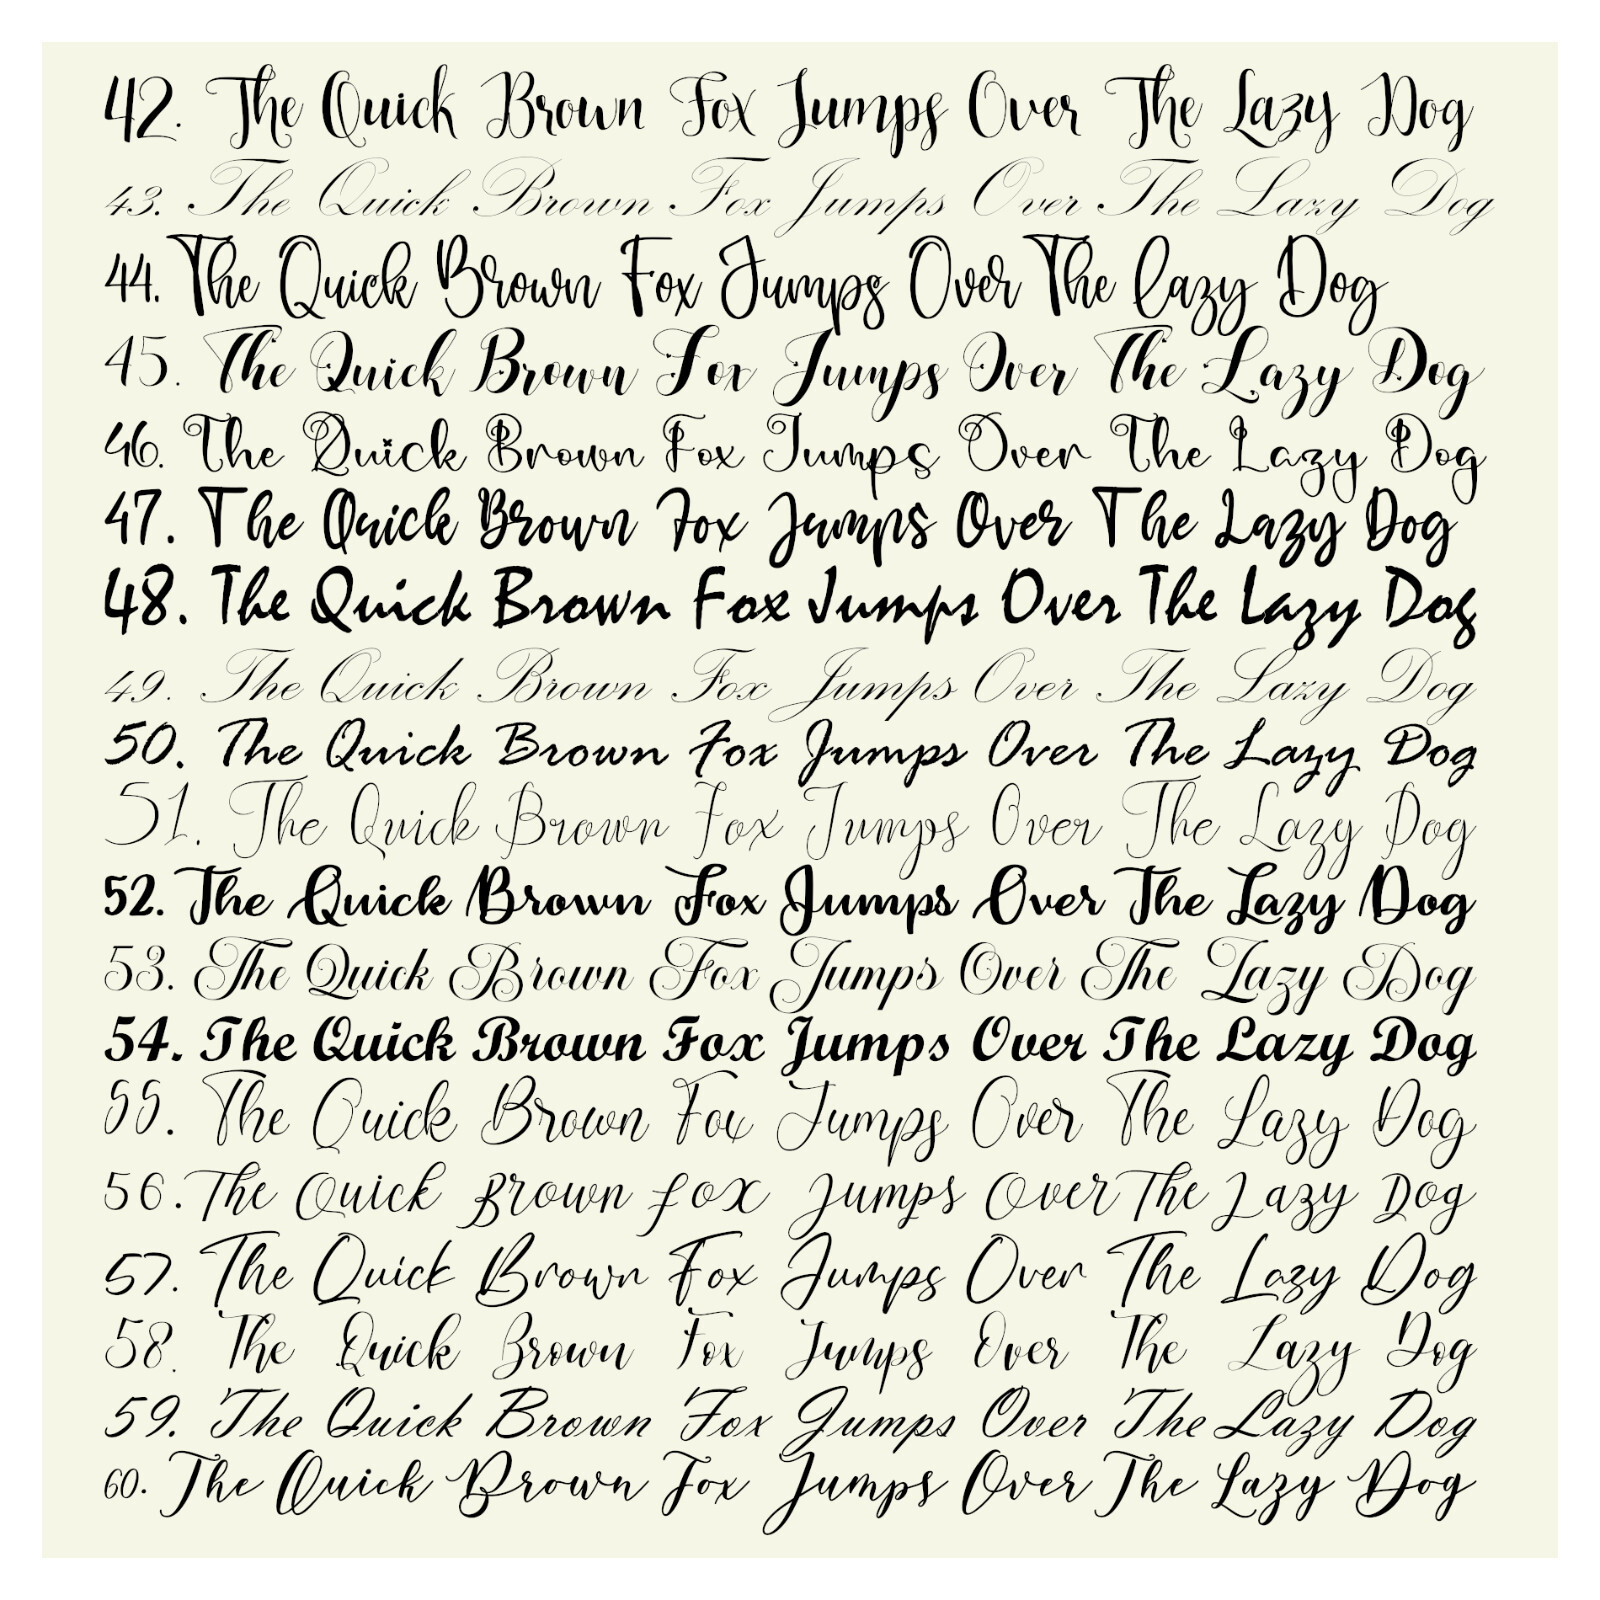 42. The Quick Brown Fox Jumps Over The Lazy Dog
43. The Quick Brown Fox Jumps Over The Lazy Dog
44. The Quick Brown Fox Jumps Over The Lazy Dog
45. The Quick Brown Fox Jumps Over The Lazy Dog
46. The Quick Brown Fox Jumps Over The Lazy Dog
47. The Quick Brown Fox Jumps Over The Lazy Dog
48. The Quick Brown Fox Jumps Over The Lazy Dog
49. The Quick Brown Fox Jumps Over The Lazy Dog
50. The Quick Brown Fox Jumps Over The Lazy Dog
51. The Quick Brown Fox Jumps Over The Lazy Dog
52. The Quick Brown Fox Jumps Over The Lazy Dog
53. The Quick Brown Fox Jumps Over The Lazy Dog
54. The Quick Brown Fox Jumps Over The Lazy Dog
55. The Quick Brown Fox Jumps Over The Lazy Dog
56. The Quick Brown Fox Jumps Over The Lazy Dog
57. The Quick Brown Fox Jumps Over The Lazy Dog
58. The Quick Brown Fox Jumps Over The Lazy Dog
59. The Quick Brown Fox Jumps Over The Lazy Dog
60. The Quick Brown Fox Jumps Over The Lazy Dog